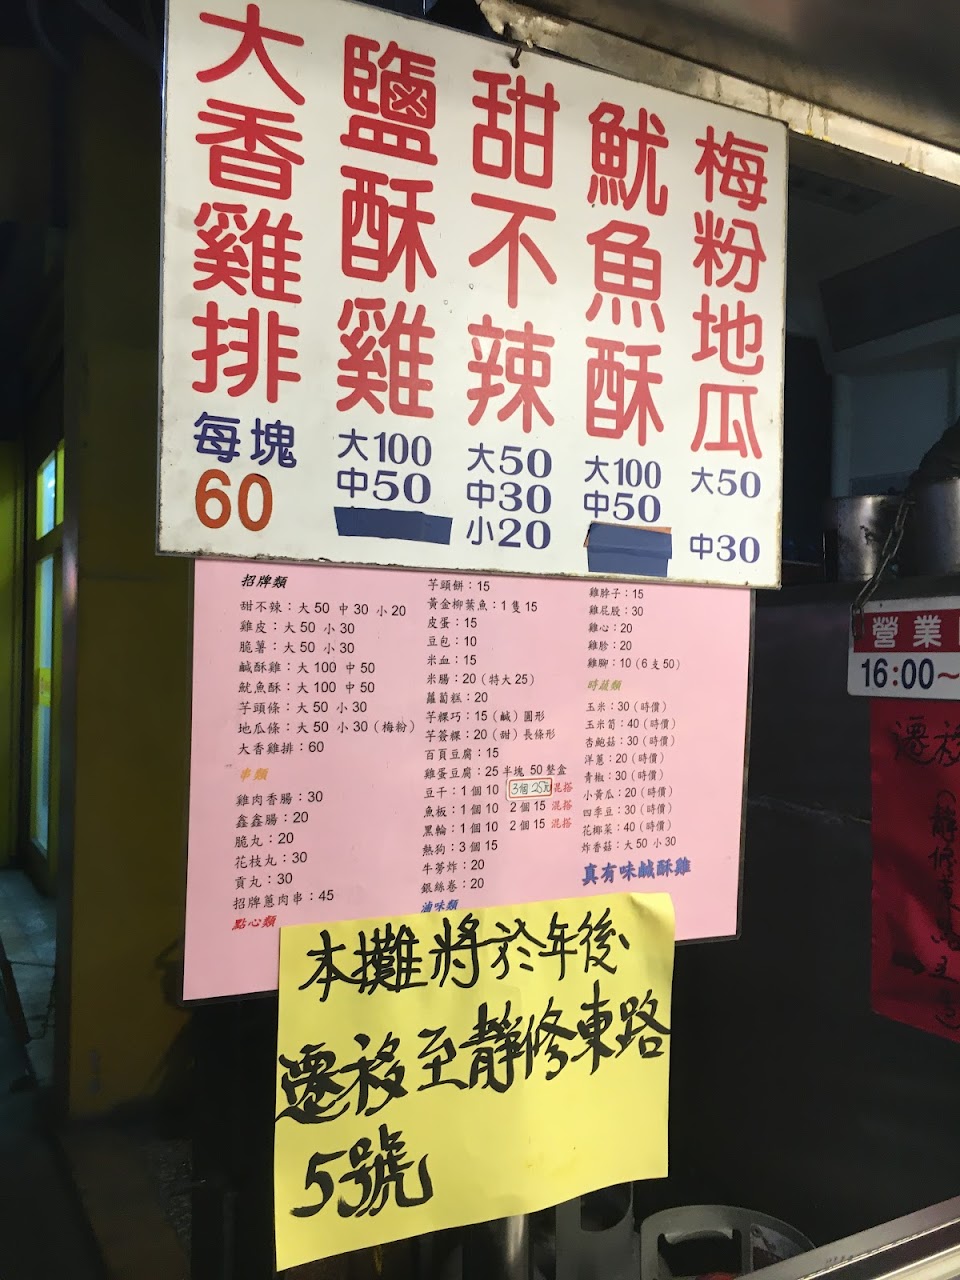 大香雞排
每塊
60
鹽酥雞
大100
中50
甜不辣
大50
中30
小20
魷魚酥
大100
中50
梅粉地瓜
大50
中30
招牌類
甜不辣：大50 中30 小20
雞皮：大50 小30
脆薯：大50 小30
鹹酥雞：大100 中50
魷魚酥：大100 中50
芋頭條：大50 小30
地瓜條：大50 小30(梅粉)
大香雞排：60
串類
雞肉香腸：30
鑫鑫腸：20
脆丸：20
花枝丸：30
貢丸：30
招牌蔥肉串：45
點心類
芋頭餅：15
黃金柳葉魚：1隻15
皮蛋：15
豆包：10
米血：15
米腸：20(特大25)
蘿蔔糕：20
芋粿巧：15(鹹)圓形
芋簽粿：20(甜)長條形
百頁豆腐：15
雞蛋豆腐：25半塊 50整盒
豆干：1個10 3個25元混搭
魚板：1個10 2個15 混搭
黑輪：1個10 2個15 混搭
熱狗：3個15
牛蒡炸：20
銀絲卷：20
滷味類
雞脖子：15
雞屁股：30
雞心：20
雞胗：20
雞腳：10(6支50)
時蔬類
玉米：30(時價)
玉米筍：40(時價)
杏鮑菇：30(時價)
洋蔥：20(時價)
青椒：30(時價)
小黃瓜：20(時價)
四季豆：30(時價)
花椰菜：40(時價)
炸香菇：大50 小30
真有味鹹酥雞
本攤將於年後
遷移至靜修東路
53號
營業
16:00~
遷移